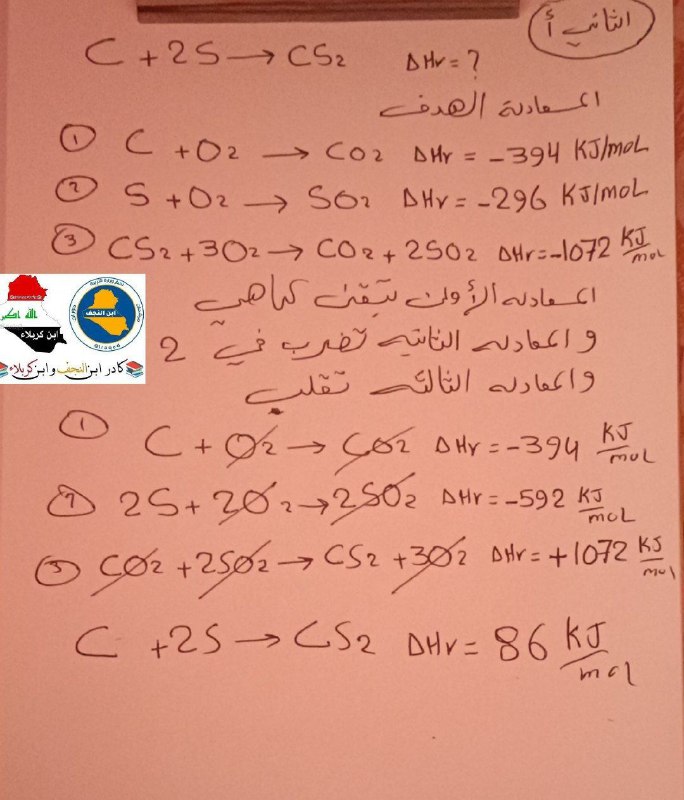 الثاني أ
C + 2S → CS2 ΔHr = ?
المعادلة الهدف
① C + O2 → CO2 ΔHr = -394 KJ/mol
② S + O2 → SO2 ΔHr = -296 KJ/mol
③ CS2 + 3O2 → CO2 + 2SO2 ΔHr = -1072 KJ/mol
المعادله الأولى تبقى كما هي
و المعادله الثانيه تضرب في 2
والمعادله الثالثه تقلب
① C + O2 → CO2 ΔHr = -394 KJ/mol
② 2S + 2O2 → 2SO2 ΔHr = -592 KJ/mol
③ CO2 + 2SO2 → CS2 + 3O2 ΔHr = +1072 KJ/mol
C + 2S → CS2 ΔHr = 86 KJ/mol
الله اكبر
ابن كربلاء
ابن النجف
كادر ابن النجف و ابن كربلاء